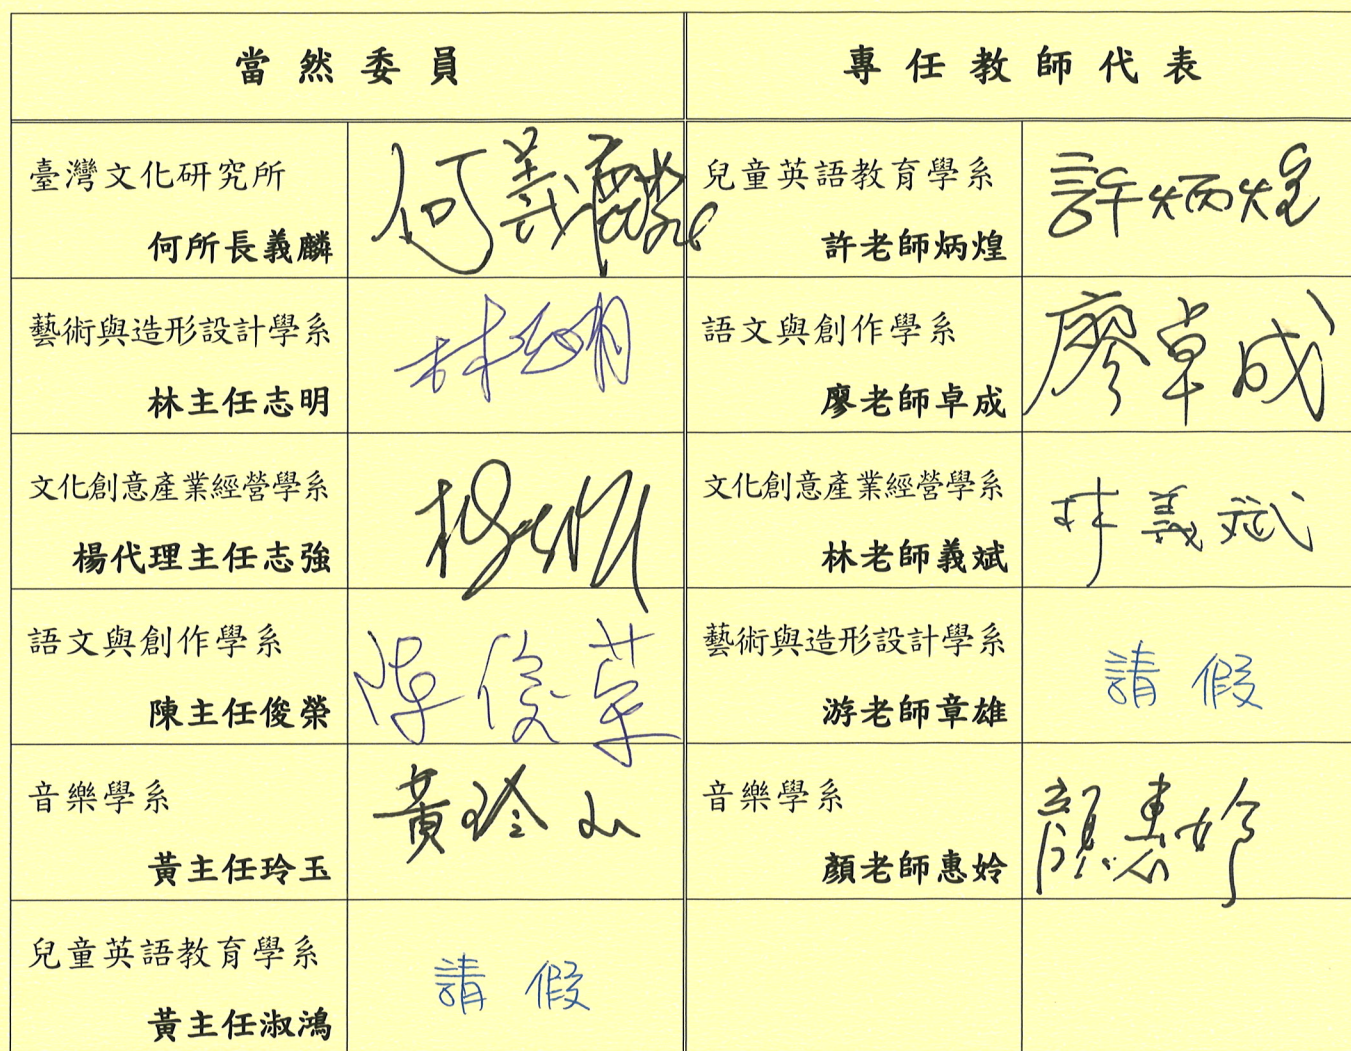 當然委員
專任教師代表
臺灣文化研究所
何所長義麟
何義麟
兒童英語教育學系
許老師炳煌
許炳煌
藝術與造形設計學系
林主任志明
林志明
語文與創作學系
廖老師卓成
廖卓成
文化創意產業經營學系
楊代理主任志強
楊志強
文化創意產業經營學系
林老師義斌
林義斌
語文與創作學系
陳主任俊榮
陳俊榮
藝術與造形設計學系
游老師章雄
請假
音樂學系
黃主任玲玉
黃玲玉
音樂學系
顏老師惠姈
顏惠姈
兒童英語教育學系
黃主任淑鴻
請假